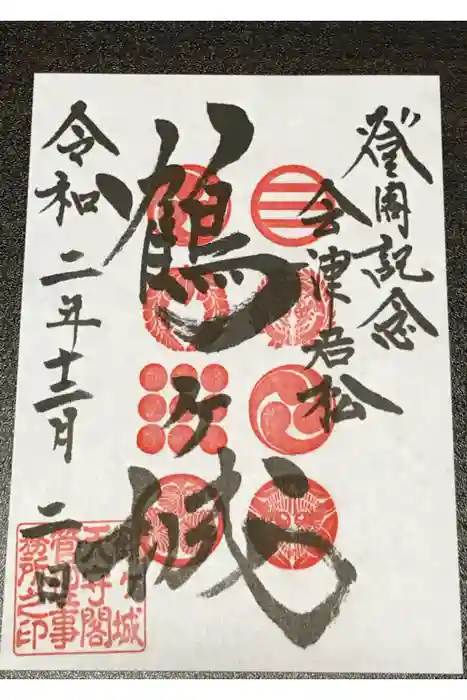 登閣記念
会津若松
鶴ヶ城
令和二年十二月二日
鶴ヶ城
天守閣
管理事
務所之印